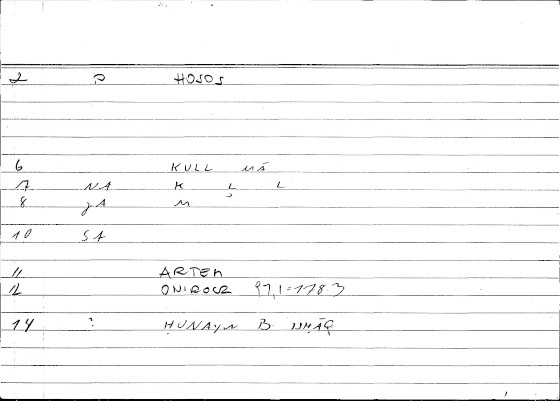 2 P HOSOS
6 KULL MĀ
7 NA K L L
8 JA M
10 SA
11 ARTEM
12 ONIROCR 97,1=178.3
14 : ḤUNAYN B ISḤĀQ